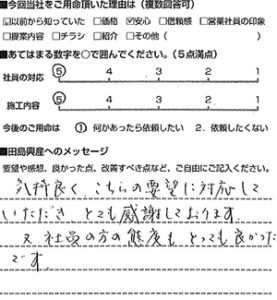 ■今回当社をご用命頂いた理由は（複数回答可）
☑以前から知っていた □価格 ☑安心 □信頼感 □営業社員の印象
□提案内容 □チラシ □紹介 □その他（ ）
■あてはまる数字を○で囲んでください。（5点満点）
社員の対応 5 4 3 2 1
施工内容 5 4 3 2 1
今後のご用命は 1 何かあったら依頼したい 2．依頼したくない
■田島興産へのメッセージ
要望や感想、良かった点、改善すべき点など、ご自由にご記入ください。
気持良く、こちらの要望に対応して
いただき、とても感謝しております。
又、社員の方の態度も、とっても良かった
です。